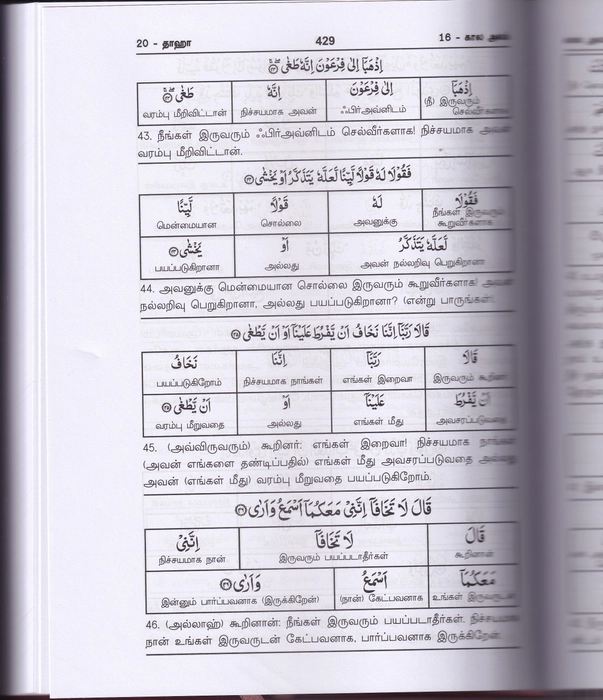 20 - தாஹா 429 16 - கால
اِذْهَبَاۤ اِلٰى فِرْعَوْنَ اِنَّهٗ طَغٰى ۚۖ ۴۳
اِذْهَبَاۤ اِلٰى فِرْعَوْنَ اِنَّهٗ طَغٰى ۚۖ ۴۳
(நீ) இருவரும் ஃபிர்அவ்னிடம் நிச்சயமாக அவன் வரம்பு மீறிவிட்டான்
செல்வீர்களாக
43. நீங்கள் இருவரும் ஃபிர்அவ்னிடம் செல்வீர்களாக! நிச்சயமாக அவன்
வரம்பு மீறிவிட்டான்.
فَقُوْلَا لَهٗ قَوْلًا لَّيِّنًا لَّعَلَّهٗ يَتَذَكَّرُ اَوْ يَخْشٰى ۴۴
فَقُوْلَا لَهٗ قَوْلًا لَّيِّنًا
நீங்கள் இருவரும் அவனுக்கு சொல்லை மென்மையான
கூறுவீர்களாக
لَّعَلَّهٗ يَتَذَكَّرُ اَوْ يَخْشٰى ۴۴
அவன் நல்லறிவு பெறுகிறானா அல்லது பயப்படுகிறானா
44. அவனுக்கு மென்மையான சொல்லை இருவரும் கூறுவீர்களாக! அவன்
நல்லறிவு பெறுகிறானா, அல்லது பயப்படுகிறானா? (என்று பாருங்கள்)
قَالَا رَبَّنَاۤ اِنَّنَا نَخَافُ اَنْ يَّفْرُطَ عَلَيْنَاۤ اَوْ اَنْ يَّطْغٰى ۴۵
قَالَا رَبَّنَاۤ اِنَّنَا نَخَافُ
இருவரும் கூறினர் எங்கள் இறைவா நிச்சயமாக நாங்கள் பயப்படுகிறோம்
اَنْ يَّفْرُطَ عَلَيْنَاۤ اَوْ اَنْ يَّطْغٰى ۴۵
அவசரப்படுவதை எங்கள் மீது அல்லது வரம்பு மீறுவதை
45. (அவ்விருவரும்) கூறினர்: எங்கள் இறைவா! நிச்சயமாக நாங்கள்
(அவன் எங்களை தண்டிப்பதில்) எங்கள் மீது அவசரப்படுவதை அல்லது
அவன் (எங்கள் மீது) வரம்பு மீறுவதை பயப்படுகிறோம்.
قَالَ لَا تَخَافَاۤ اِنَّنِىْ مَعَكُمَاۤ اَسْمَعُ وَاَرٰى ۴۶
قَالَ لَا تَخَافَاۤ اِنَّنِىْ
கூறினான் இருவரும் பயப்படாதீர்கள் நிச்சயமாக நான்
مَعَكُمَاۤ اَسْمَعُ وَاَرٰى ۴۶
உங்கள் இருவருடன் (நான்) கேட்பவனாக இன்னும் பார்ப்பவனாக (இருக்கிறேன்)
46. (அல்லாஹ்) கூறினான்: நீங்கள் இருவரும் பயப்படாதீர்கள். நிச்சயமாக
நான் உங்கள் இருவருடன் கேட்பவனாக, பார்ப்பவனாக இருக்கிறேன்.